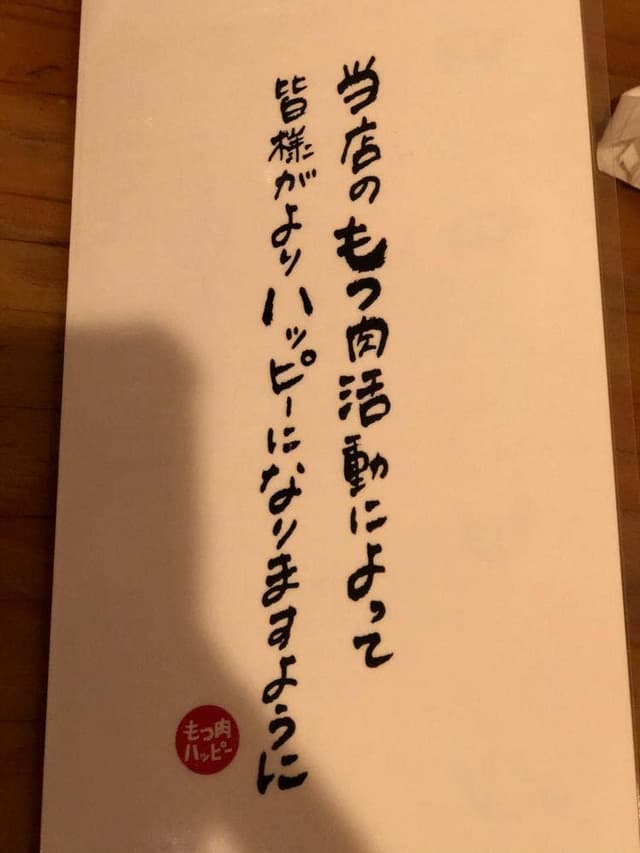 当店のもつ肉活動によって
皆様がよりハッピーになりますように
もつ肉
ハッピー